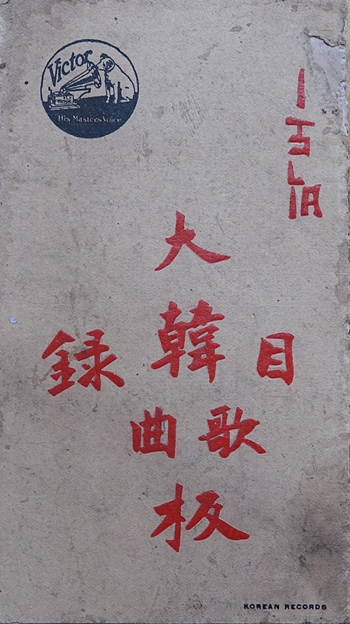 Victor
His Masters Voice
大
錄 韓 目
曲 歌
板
KOREAN RECORDS